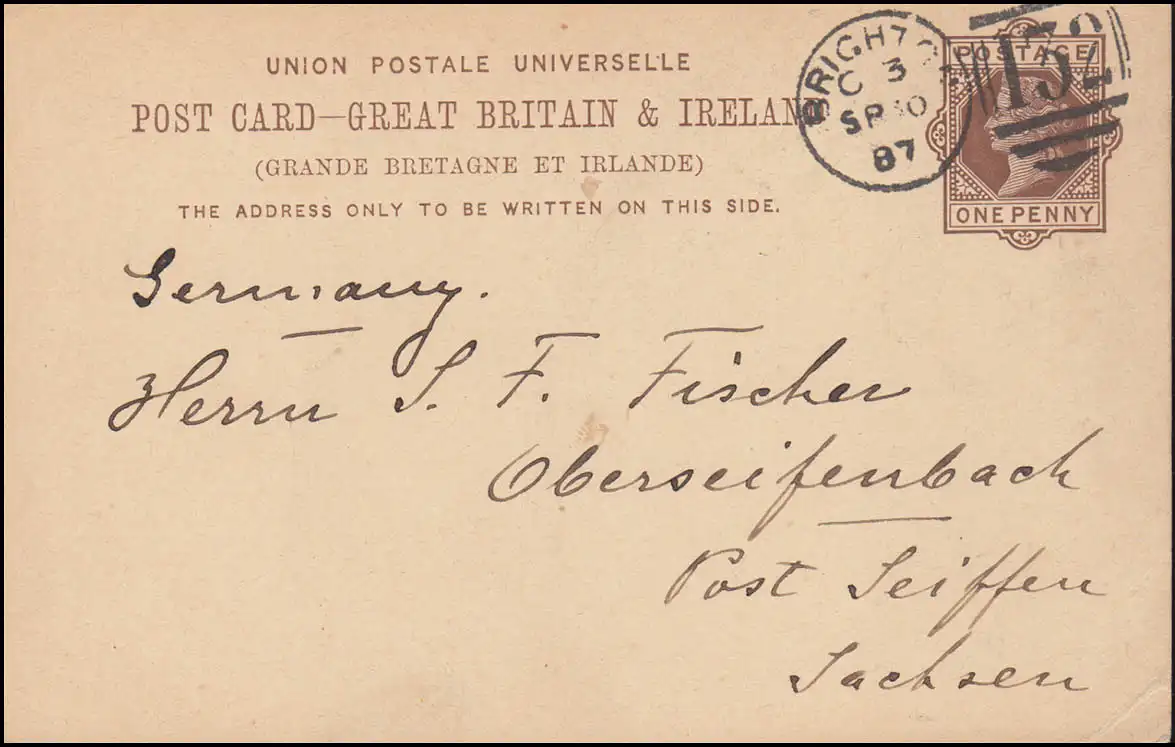 UNION POSTALE UNIVERSELLE
POST CARD—GREAT BRITAIN & IRELAND
(GRANDE BRETAGNE ET IRLANDE)
THE ADDRESS ONLY TO BE WRITTEN ON THIS SIDE.
BRIGHTON
C 3
SP 10
87
132
POSTAGE
ONE PENNY
Germany.
Herrn S. F. Fischer
Oberseifenbach
Post Seiffen
Sachsen